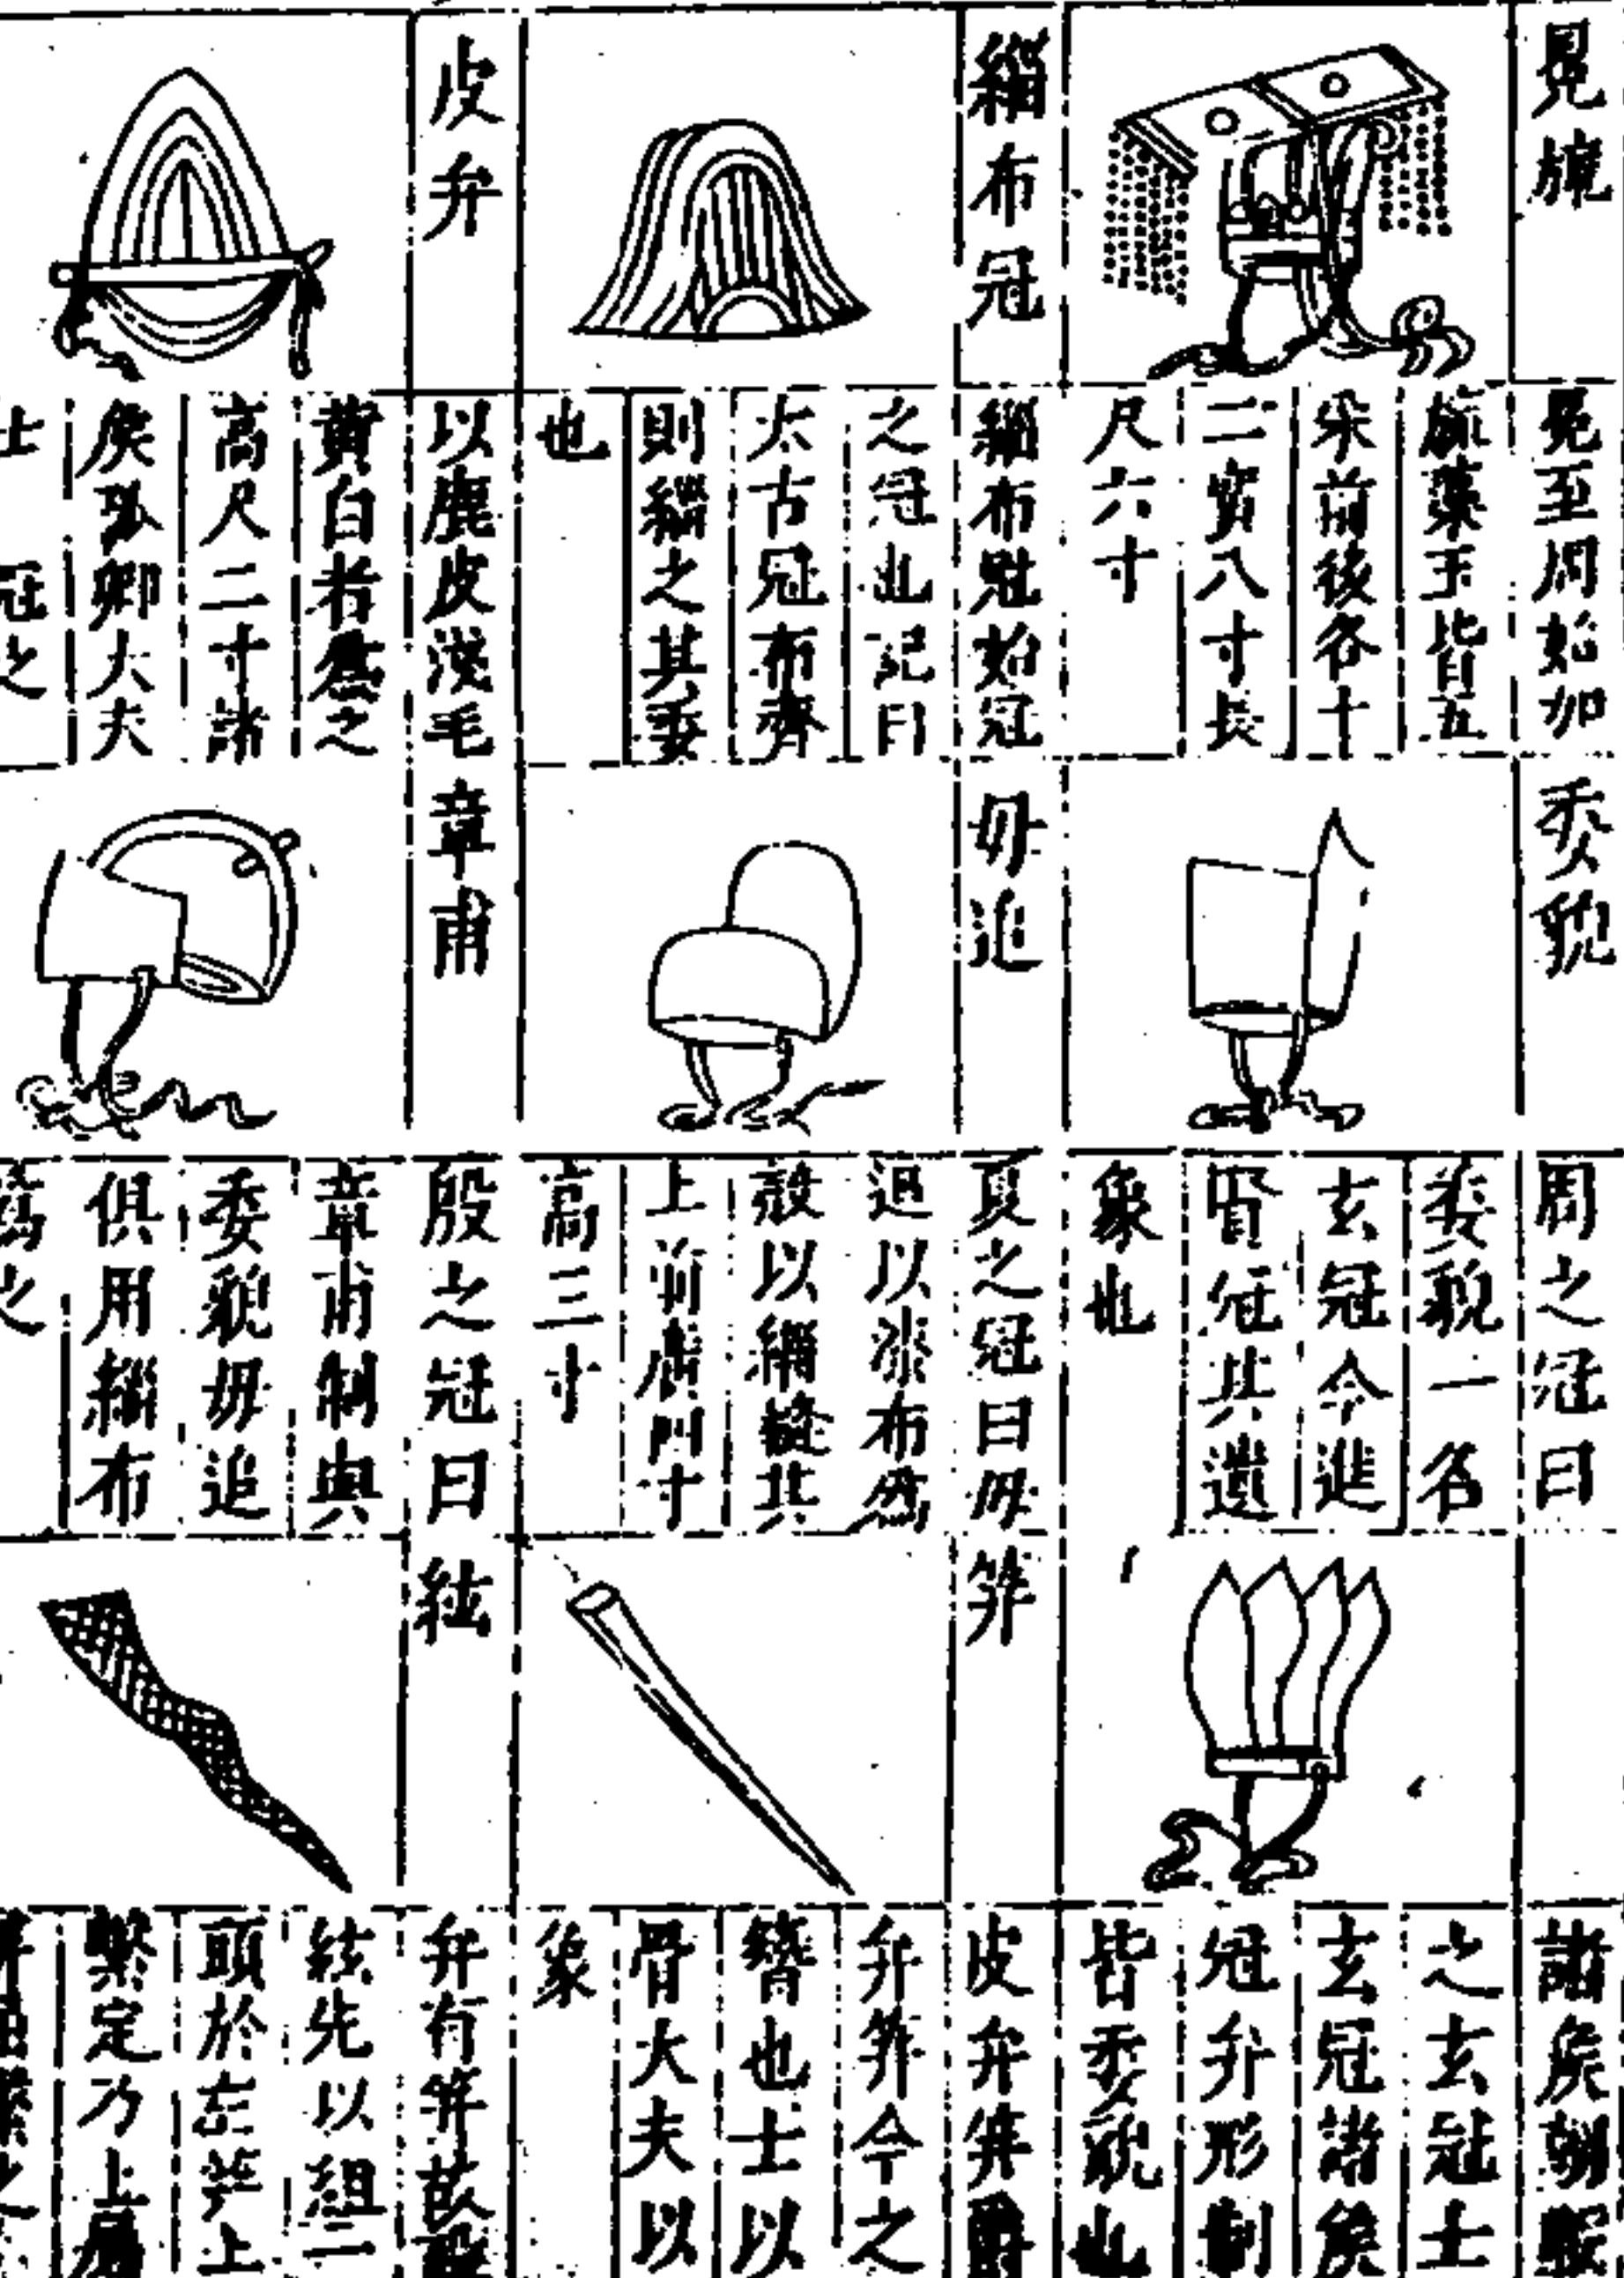 冕旒
冕至周始加
旒藻玉皆五
采前後各十
二寬八寸長
尺六寸
緇布冠
緇布冠始冠
之冠也記曰
太古冠布齊
則緇之其委
也
皮弁
以鹿皮淺毛
黄白者爲之
高尺二寸諸
矦孤卿大夫
士 冠之
委貌
周之冠曰
委貌一名
玄冠今進
賢冠其遺
象也
毋追
夏之冠曰毋
追以漆布爲
殼以緇縫其
上前廣四寸
高三寸
章甫
殷之冠曰
章甫制與
委貌毋追
俱用緇布
爲之
諸矦朝服
之玄冠士
玄冠諸矦
冠弁形制
皆委貌也
笄
皮弁笄爵
弁笄今之
簪也士以
骨大夫以
象
紘
弁有笄故設
紘先以組二
頭於左笄上
繫定乃上